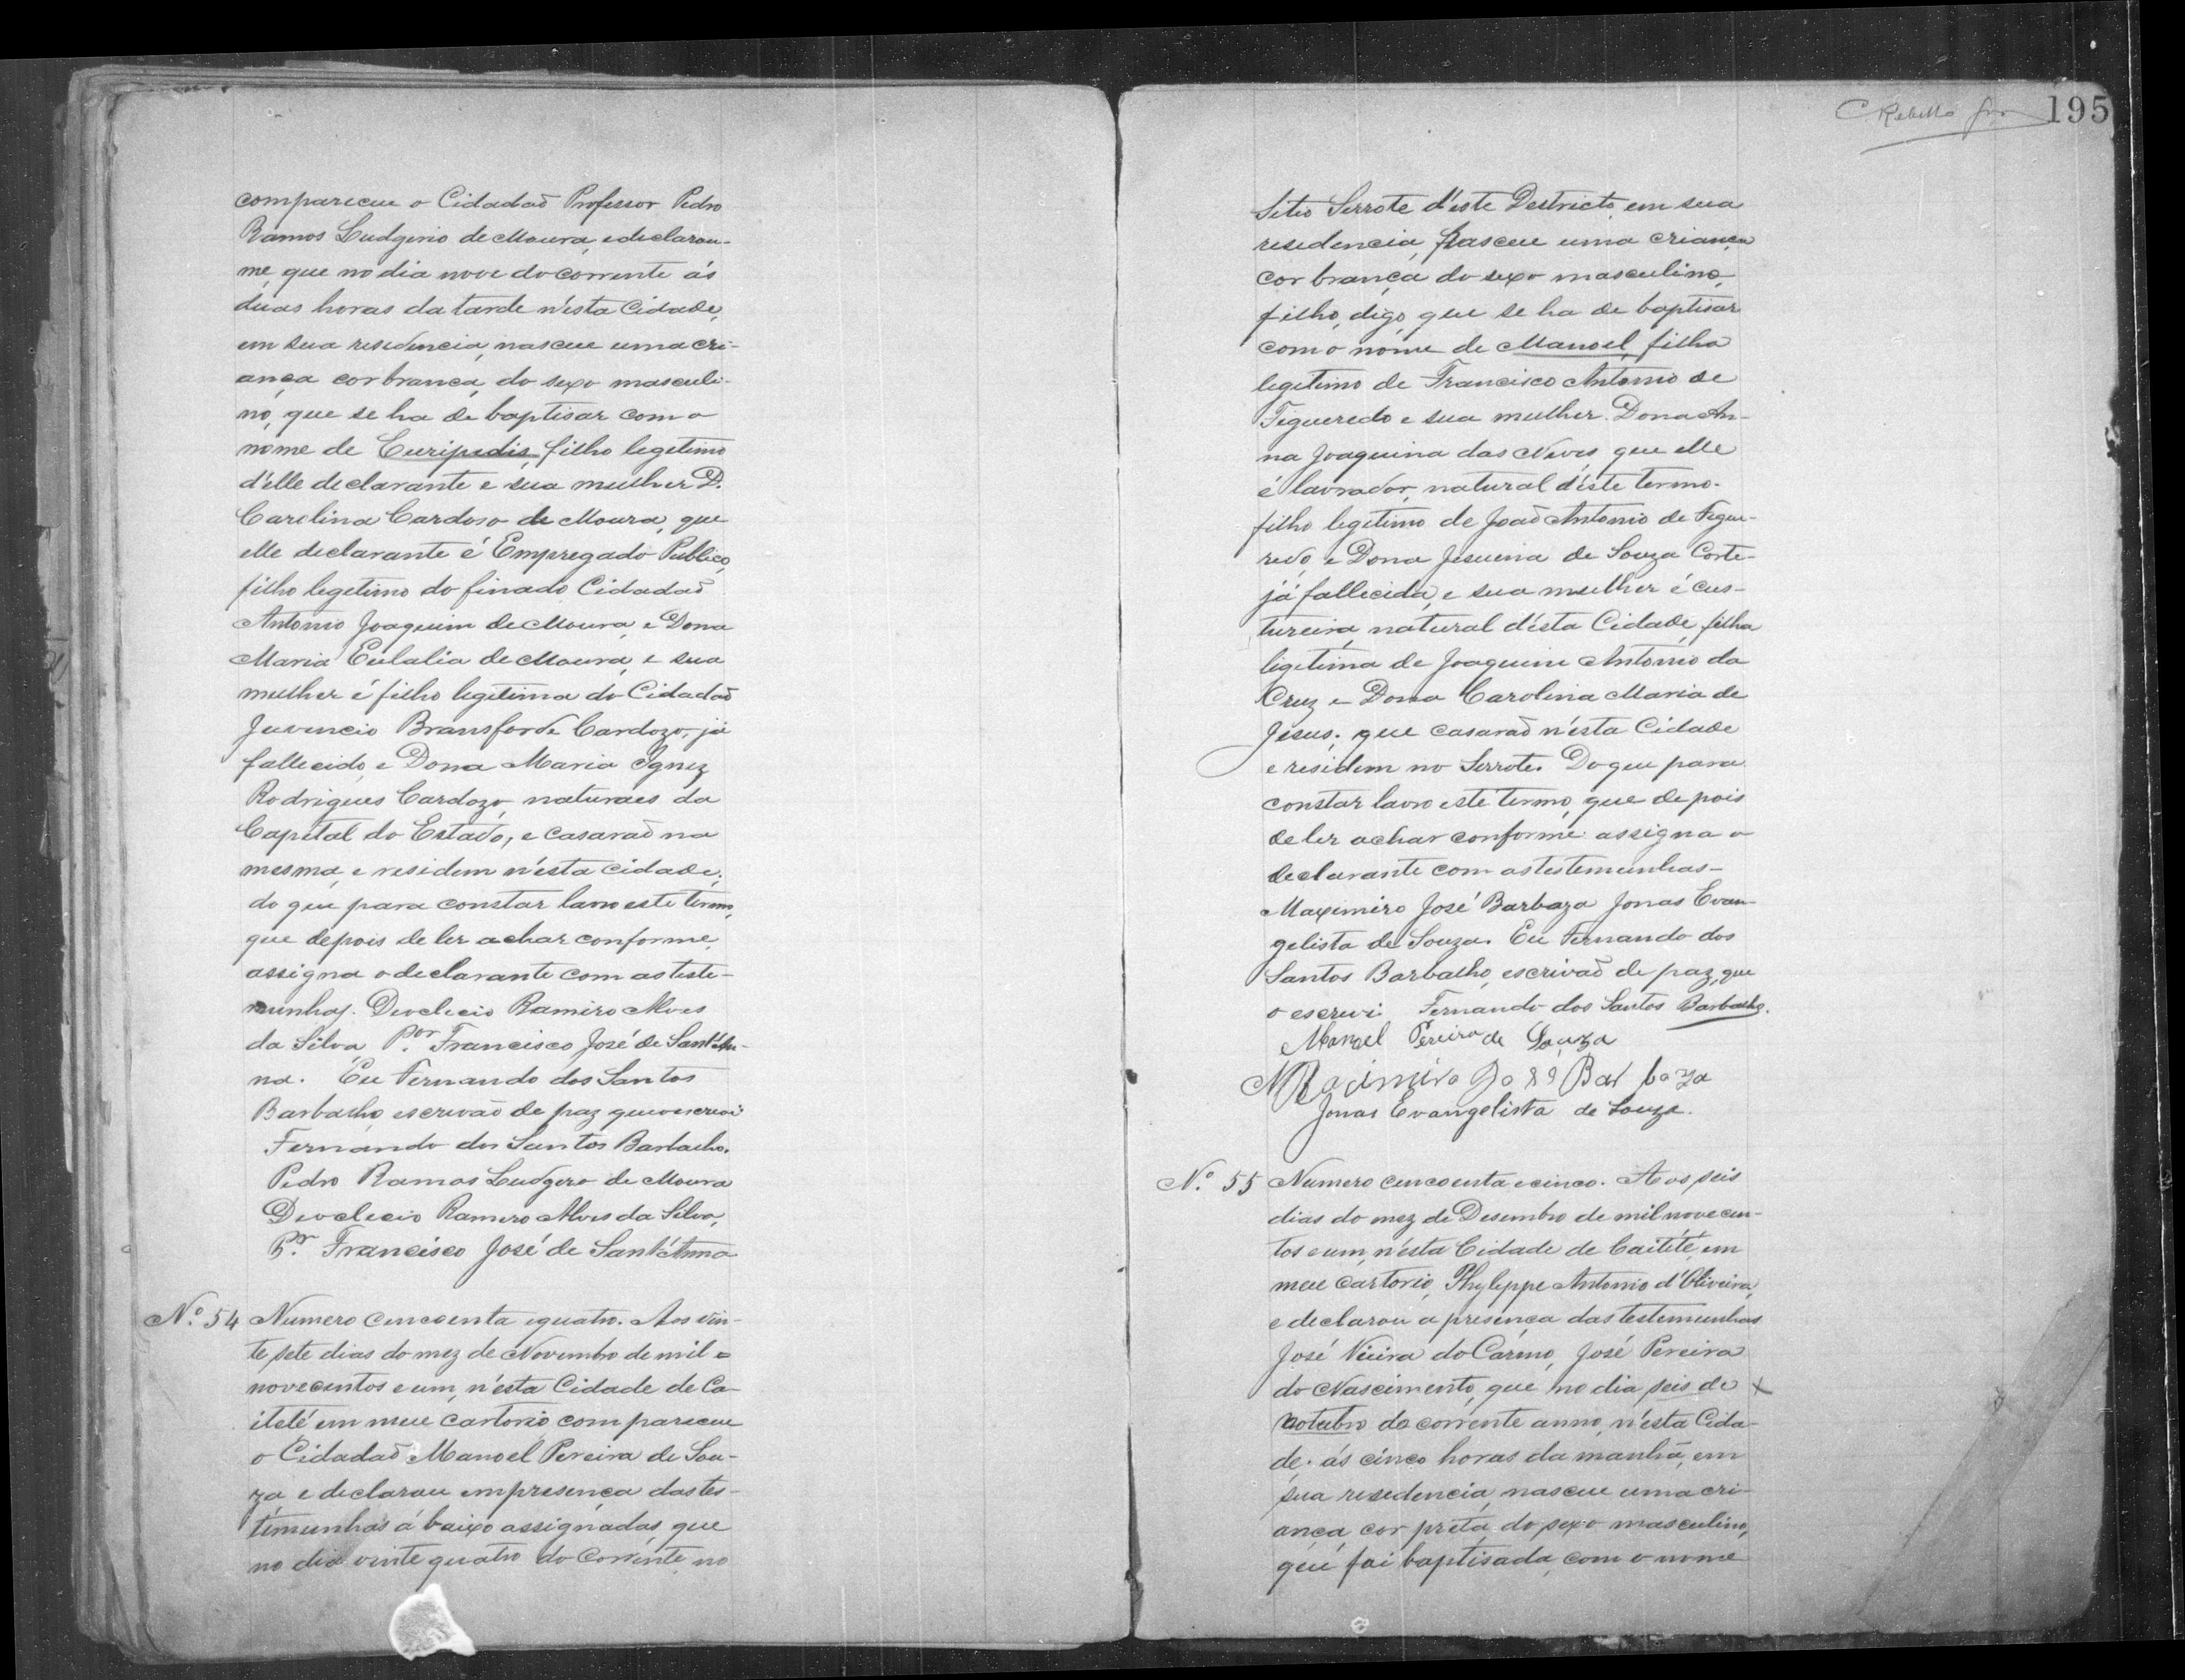 compareceu o Cidadaõ Professor Pedro
Ramos Ludgerio de Moura, e declarou-
me, que no dia nove do corrente ás
duas horas da tarde n'esta Cidade,
em sua residencia, nasceu uma cri-
ança cor branca, do sexo masculi-
no, que se ha de baptisar com o
nome de Euripedis, filho legitimo
d'elle declarante e sua mulher D.
Carolina Cardoso de Moura, que
elle declarante é Empregado Publico,
filho legitimo do finado Cidadaõ
Antonio Joaquim de Moura, e Dona
Maria Eulalia de Moura, e sua
mulher é filho legitima do Cidadaõ
Juvencio Bransforde Cardozo, já
fallecido, e Dona Maria Ignez
Rodrigues Cardozo, naturaes da
Capital do Estado, e casaraõ na
mesma, e residem n'esta cidade;
do que para constar lavro este termo,
que depois de ler achar conforme,
assigna o declarante com as teste-
munhas. Deoclecio Ramiro Alves
da Silva, P.or Francisco José de Sant'An-
na. Eu Fernando dos Santos
Barbalho, escrivaõ de paz que o escrevi
Fernando dos Santos Barbalho.
Pedro Ramos Ludgero de Moura
Deoclecio Ramero Alves da Silva,
P.or Francisco José de Sant'Anna
Nº 54 Numero cincoenta e quatro. Aos vin-
te sete dias do mez de Novembro de mil=
novecentos e um, n'esta Cidade de Ca-
iteté em meu cartorio compareceu
o Cidadaõ Manoel Pereira de Sou-
za e declarou em presença das tes-
temunhas á baixo assignadas, que
no dia vinte quatro do corrente, no
C Rebello
195
Sitio Serrote d'este Destricto, em sua
residencia, nasceu uma criança
cor branca, do sexo masculino,
filho, digo, que se ha de baptisar
com o nome de Manoel, filho
legitimo de Francisco Antonio de
Figueredo e sua mulher. Dona An-
na Joaquina das Neves, que elle
é lavrador, natural d'este termo.
filho legitimo de Joaõ Antonio de Figue-
redo, e Dona Jesuina de Souza Corte-
já fallecida, e sua mulher é cus-
tureira, natural d'esta Cidade, filha
ligitima de Joaquim Antonio da
Cruz e Dona Carolina Maria de
Jesus; que casaraõ n'esta Cidade
e residem no Serrote. Do que para
constar lavro este termo, que depois
de ler achar conforme assigna o
declarante com as testemunhas-
Maximiro José Barbaza Jonas Evan-
gelista de Souza. Eu Fernando dos
Santos Barbalho, escrivaõ de paz, que
o escrevi. Fernando dos Santos Barbalho.
Manoel Pereira de Souza
Maximiro José Barboza
Jonas Evangelista de Souza.
Nº 55 Numero cencoenta e cinco. Aos seis
dias do mez de Desembro de mil novecen-
tos e um, n'esta Cidade de Caiteté, em
meu cartorio, Phyleppe Antonio d'Oliveira,
e declarou a presença das testemunhas
José Vieira do Carmo, José Pereira
do Nascimento, que no dia seis de X
ootubro do corrente anno, n'esta Cida-
de. ás cinco horas da manhã, em
sua residencia, nasceu uma cri-
ança, cor preta, do sexo masculino,
que foi baptisada, com o nome